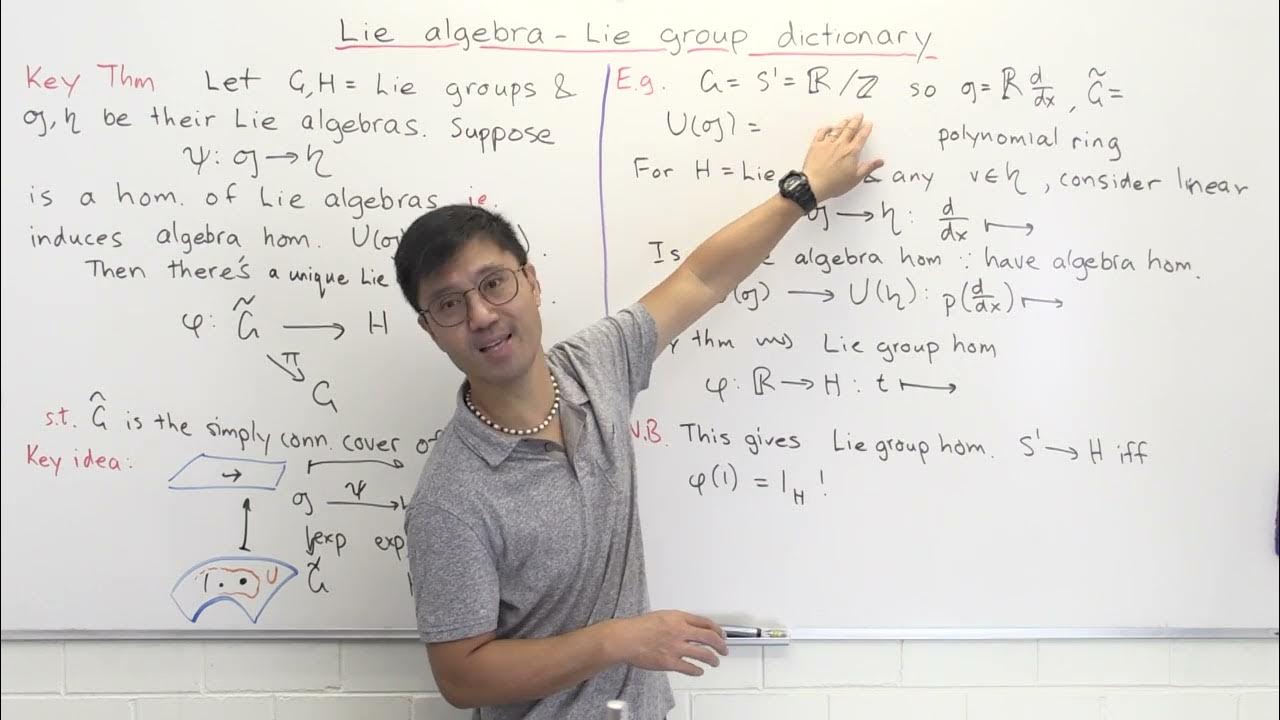 Lie algebra - Lie group dictionary
Key Thm Let G, H = Lie groups &
𝔤, 𝔥 be their Lie algebras. Suppose
ψ: 𝔤 → 𝔥
is a hom. of Lie algebras ie.
induces algebra hom. U(𝔤) ) .
Then there's a unique Lie
φ: G̃ → H
π
G
s.t. G̃ is the simply conn. cover of
Key idea:
𝔤 ψ
exp exp
1 U G̃
E.g. G = S¹ = ℝ/ℤ so 𝔤 = ℝ d/dx, G̃ =
U(𝔤) = polynomial ring
For H = Lie & any v ∈ 𝔥, consider linear
𝔤 → 𝔥 : d/dx ↦
Is algebra hom ∵ have algebra hom.
(𝔤) → U(𝔥) : p(d/dx) ↦
thm ⇝ Lie group hom
φ: ℝ → H : t ↦
N.B. This gives Lie group hom. S¹ → H iff
φ(1) = 1_H !